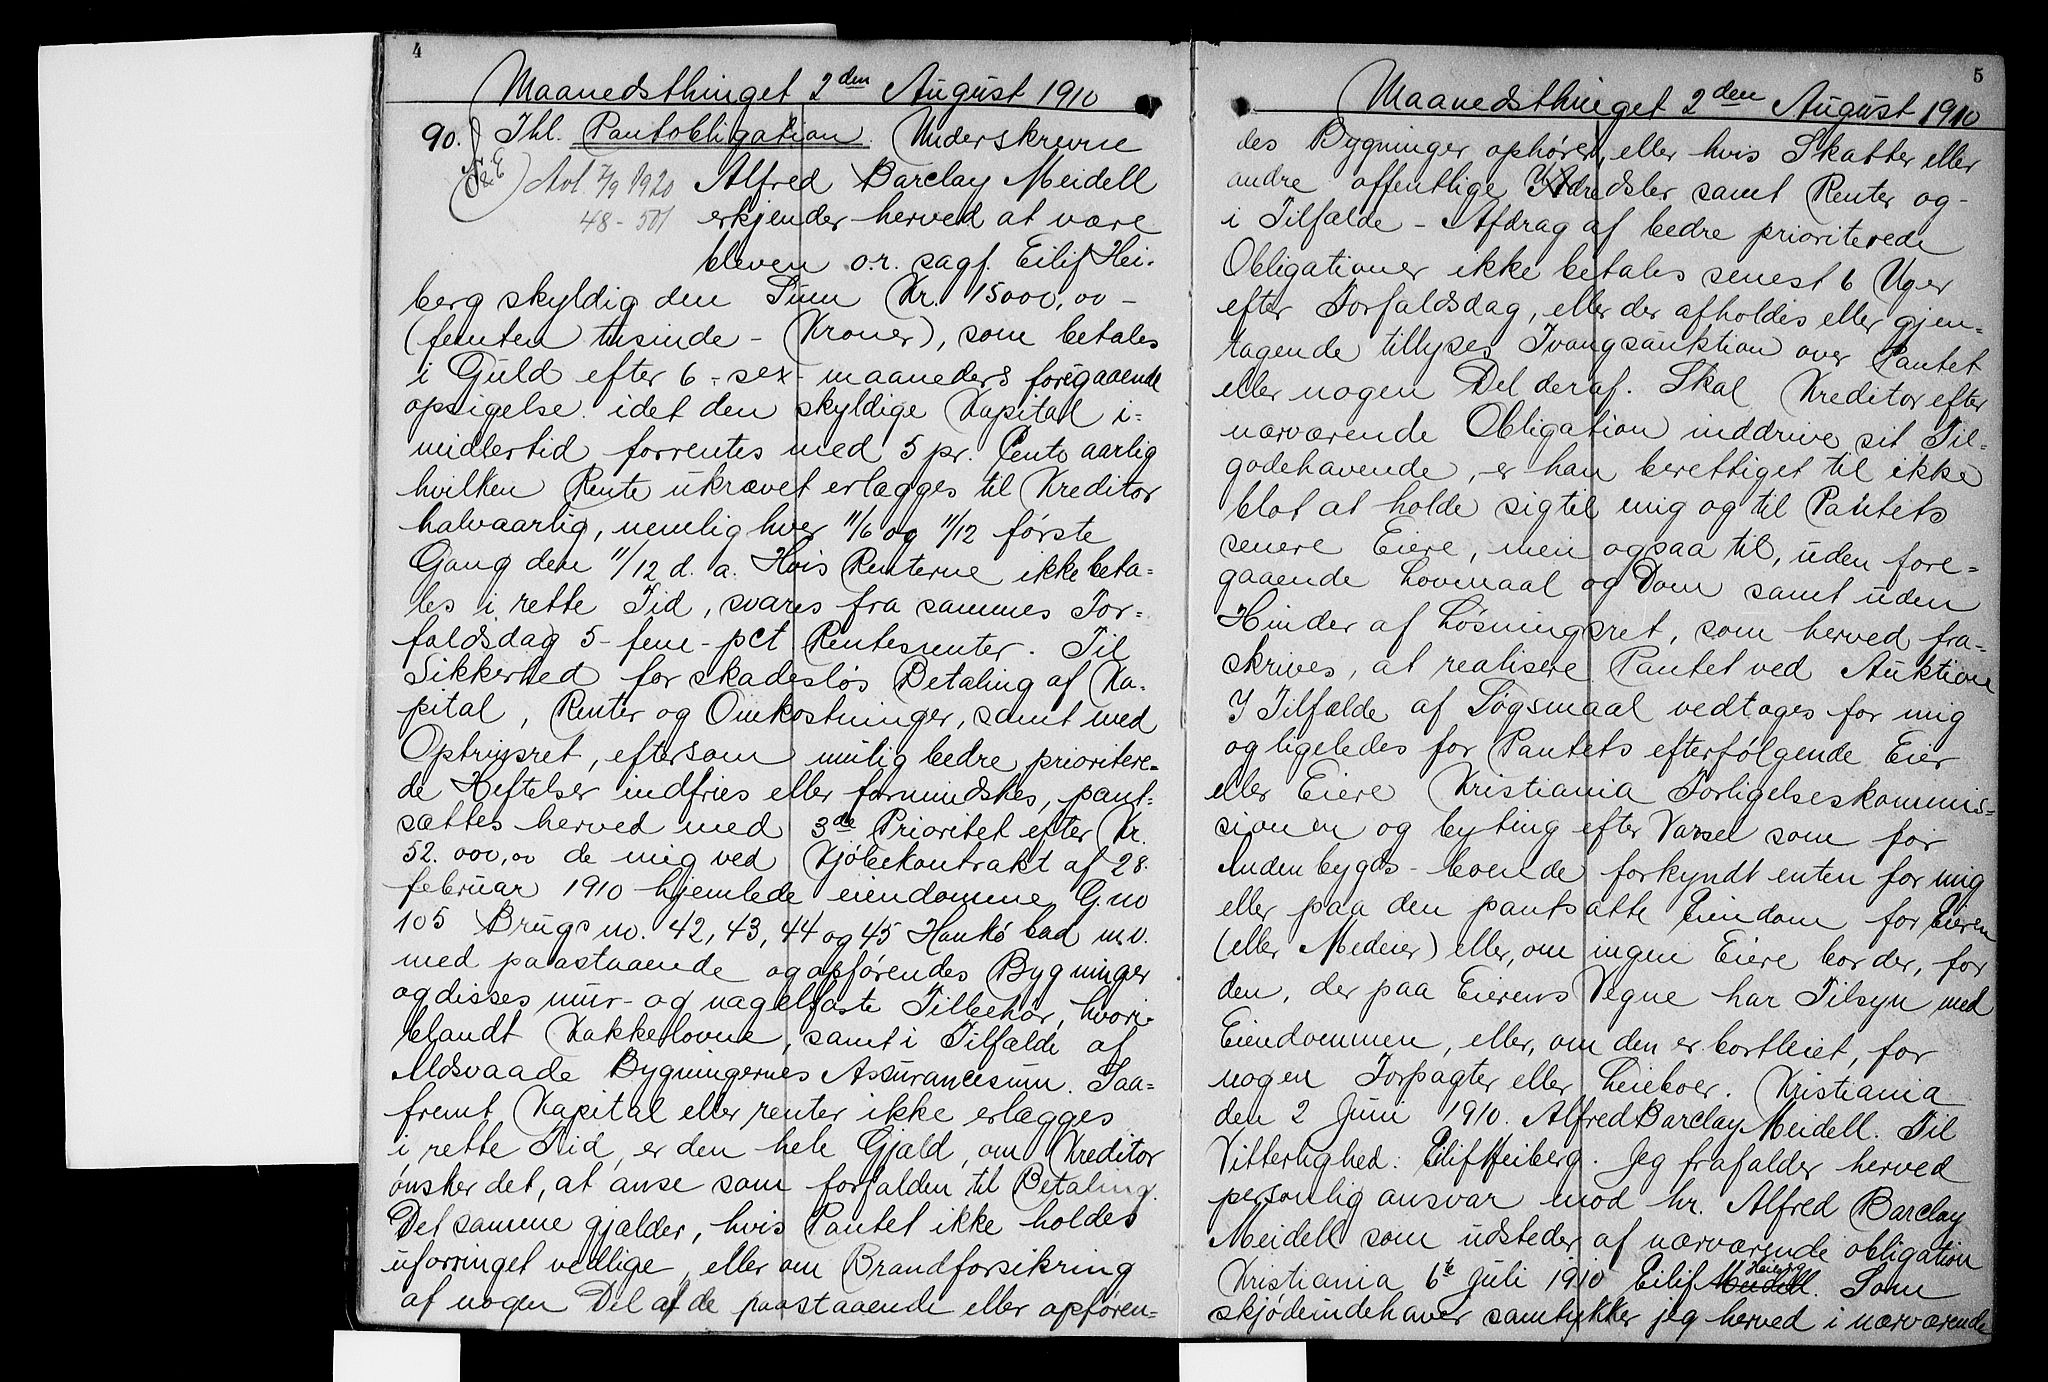 4
Maanedsthinget 2den August 1910
90. Thl. Pantobligation. Underskrevne
Avl. 7/9 1920 Alfred Barclay Meidell
48-501 erkjender herved at være
bleven o.r. sagf. Eilif Hei-
berg skyldig den Sum Kr. 15000,00 -
(femten tusinde - Kroner), som betales
i Guld efter 6 - sex - maaneders foregaaende
opsigelse. idet den skyldige Kapital i=
midlertid forrentes med 5 pr. Cento aarlig
hvilken Rente ukrævet erlægges til Kreditor
halvaarlig, nemlig hver 11/6 og 11/12 første
Gang den 11/12 d. a. Hvis Renterne ikke beta=
les i rette Tid, svares fra sammes For-
faldsdag 5 - fem - pct Rentesrenter. Til
Sikkerhed for skadesløs Betaling af Ka-
pital, Renter og Omkostninger, samt med
Optrinsret, eftersom mulig bedre prioritere-
de Heftelser indfries eller formindskes, pant-
sættes herved med 3de Prioritet efter Kr.
52.000,00 de mig ved Kjøbekontrakt af 28.
februar 1910 hjemlede eiendomme G.no
105 Brugsno. 42, 43, 44 og 45 Hankø bad m.v.
med paastaaende og opførendes Bygninger
og disses mur- og nagelfaste Tilbehør, hvori-
blandt Kakkelovne, samt i Tilfælde af
Ildsvaade Bygningernes Assurancesum. Saa=
fremt Kapital eller renter ikke erlægges
i rette Tid, er den hele Gjæld, om Kreditor
ønsker det, at anse som forfalden til Betaling.
Det samme gjælder, hvis Pantet ikke holdes
uforringet vedlige, eller om Brandforsikring
af nogen Del af de paastaaende eller opføren=
5
Maanedsthinget 2den August 1910
des Bygninger ophører, eller hvis Skatter eller
andre offentlige Udredsler samt Renter og -
i Tilfælde - Afdrag af bedre prioriterede
Obligationer ikke betales senest 6 Uger
efter Forfaldsdag, eller der afholdes eller gjen=
tagende tillyses Tvangsauktion over Pantet
eller nogen Del deraf. Skal Kreditor efter
nærværende Obligation inddrive sit Til-
godehavende, er han berettiget til ikke
blot at holde sig til mig og til Pantets
senere Eiere, men ogsaa til, uden fore=
gaaende Lovmaal og Dom samt uden
Hinder af Løsningsret, som herved fra-
skrives, at realisere Pantet ved Auktion
I Tilfælde af Søgsmaal vedtages for mig
og ligeledes for Pantets efterfølgende Eier
eller Eiere Kristiania Forligelseskommis=
sionen og byting efter Varsel som for
Indenbygds-boende forkyndt enten for mig
eller paa den pantsatte Eiendom for Eieren
(eller Medeier) eller, om ingen Eiere bor der, for
den, der paa Eierens Vegne har Tilsyn med
Eiendommen, eller, om den er bortleiet, for
nogen Forpagter eller Leieboer. Kristiania
den 2 Juni 1910. Alfred Barclay Meidell. Til
Vitterlighed: Eilif Heiberg. Jeg frafalder herved
personlig ansvar mod hr. Alfred Barclay
Meidell som udsteder af nærværende obligation
Kristiania 6te Juli 1910 Eilif Meidell Heiberg. Som
skjødeindehaver samtykker jeg herved i nærværende